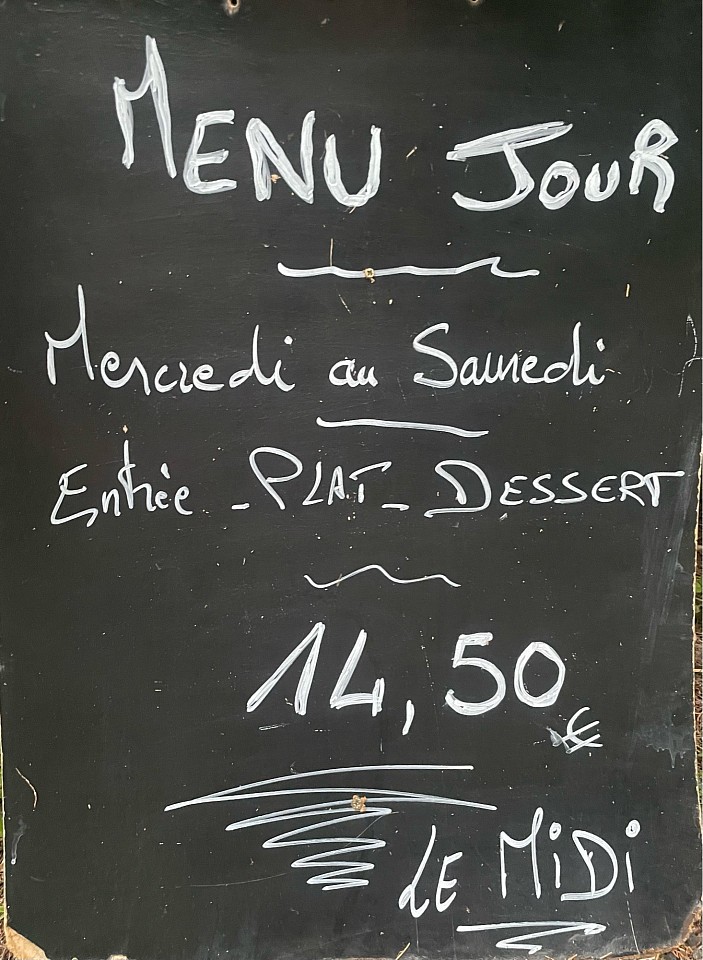 MENU JOUR
Mercredi au Samedi
Entrée - PLAT - DESSERT
14,50 €
LE MiDi